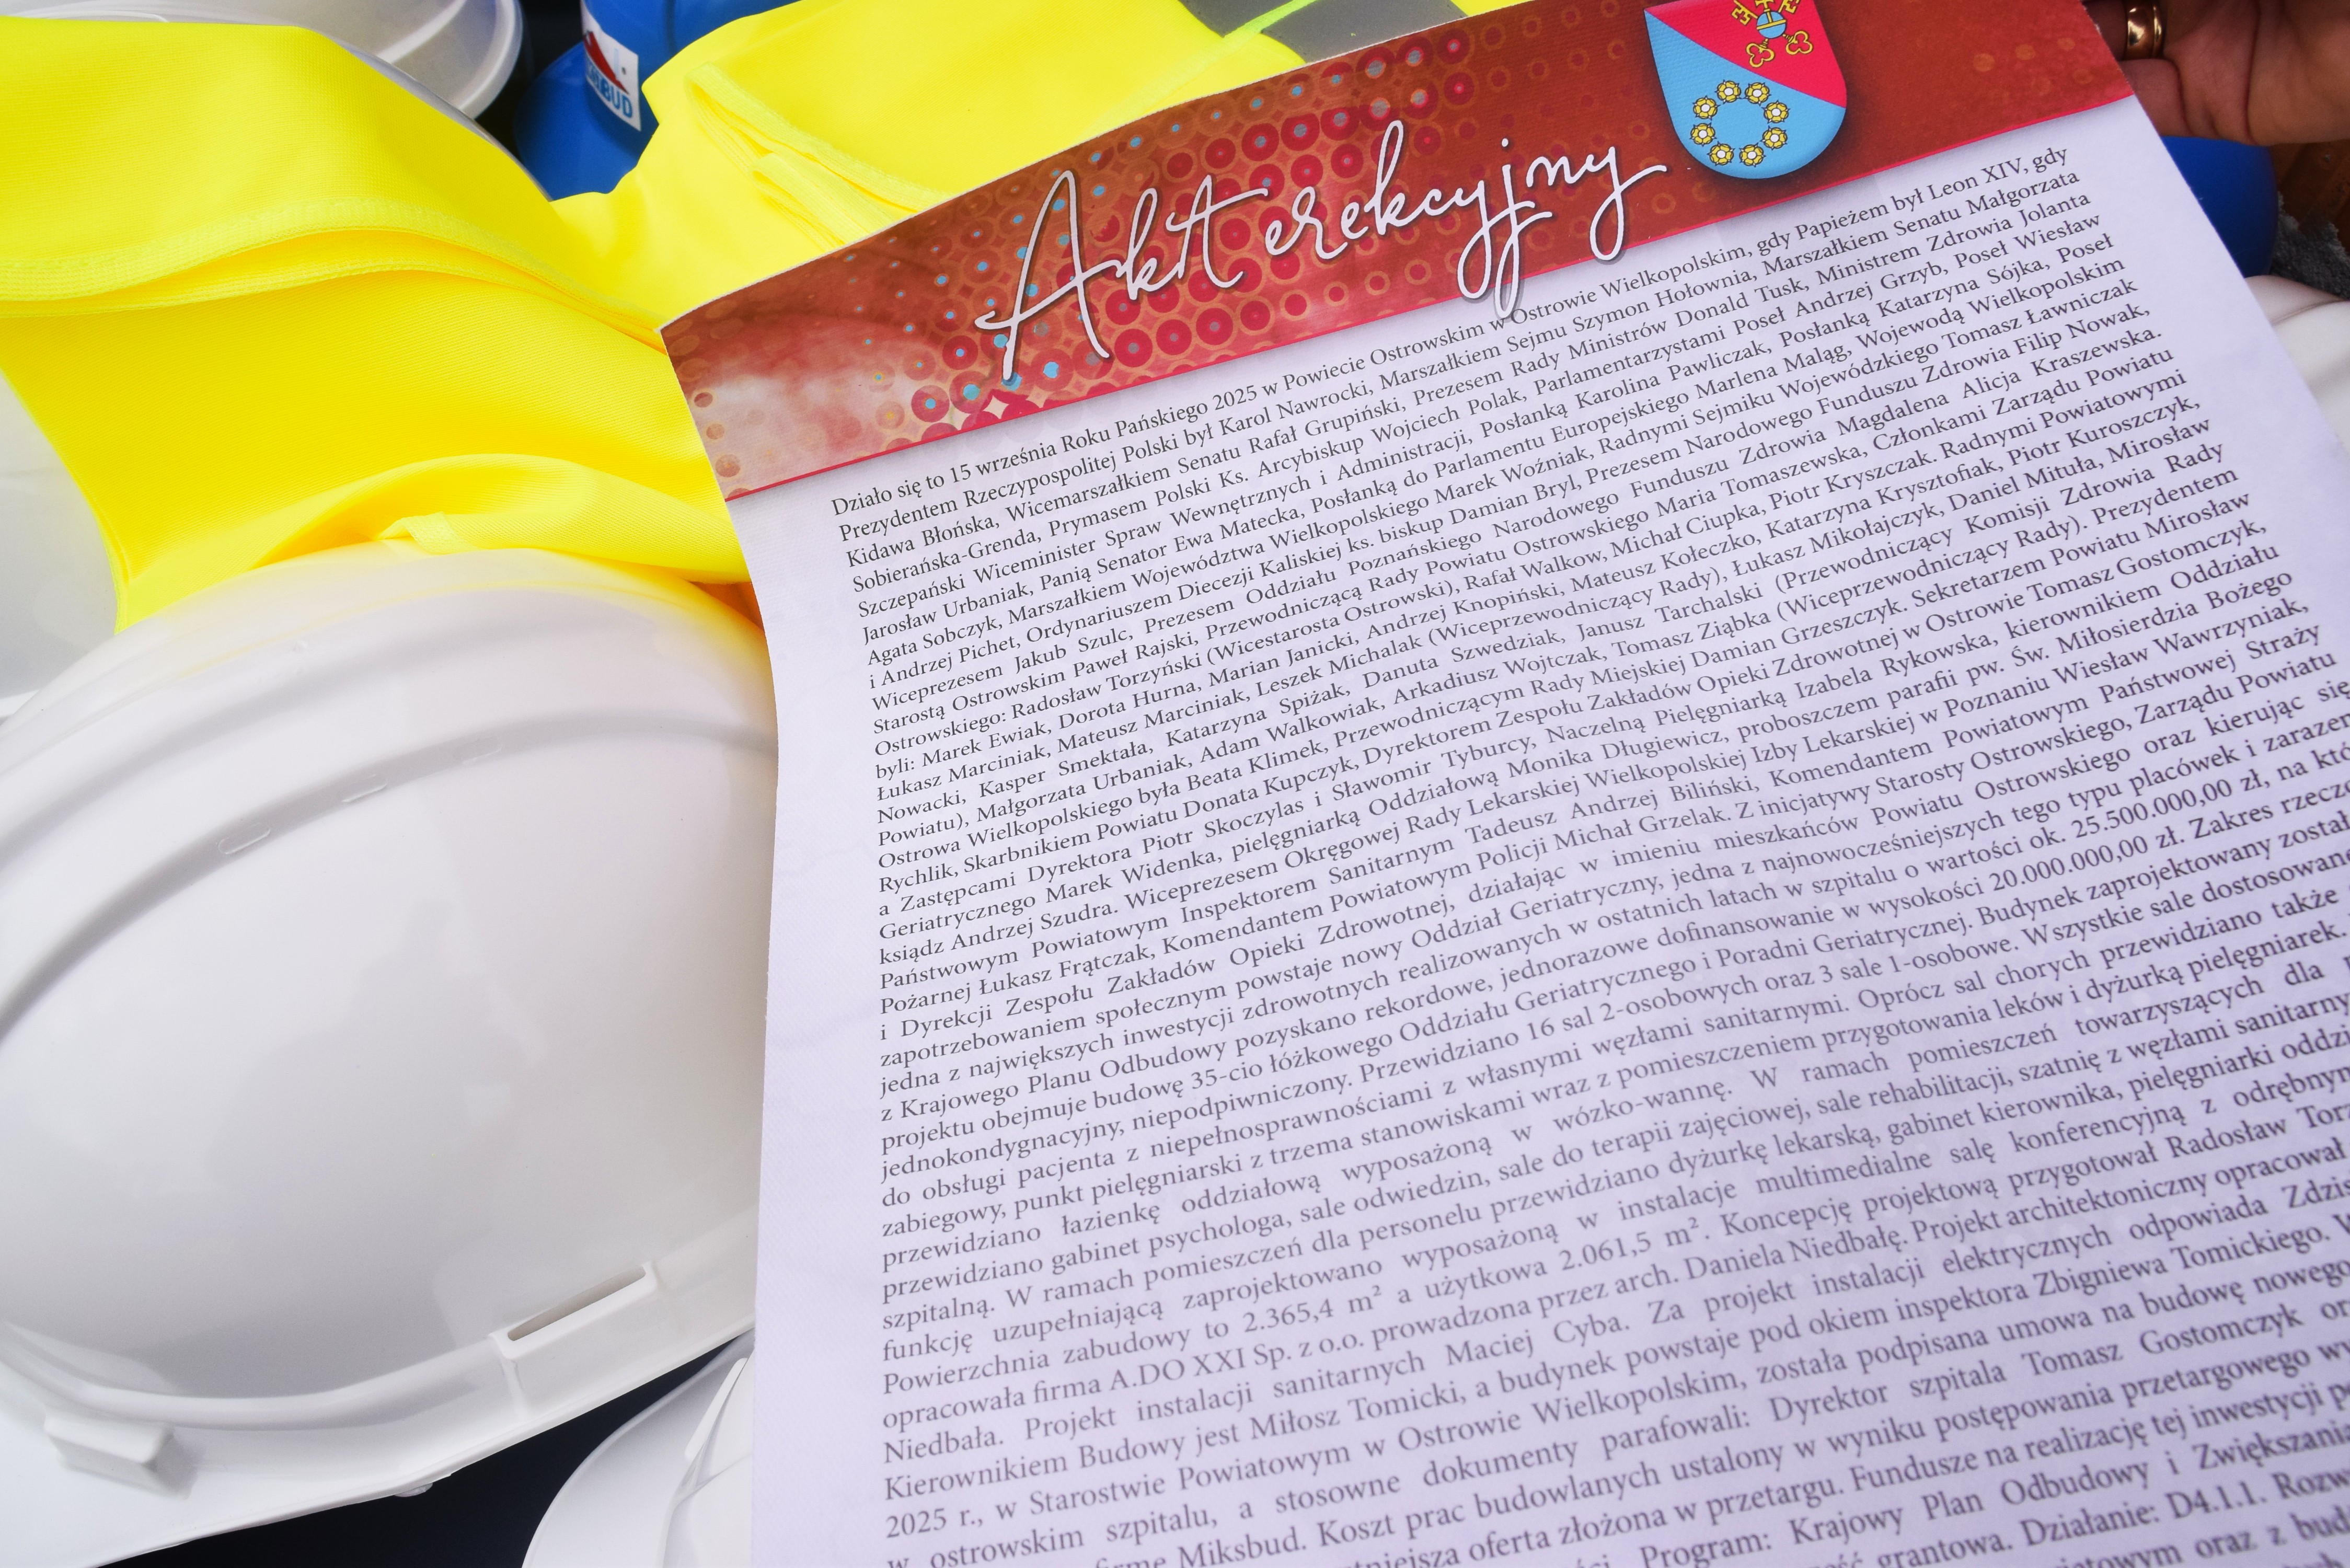 BUD
Akt erekcyjny
Działo się to 15 września Roku Pańskiego 2025 w Powiecie Ostrowskim w Ostrowie Wielkopolskim, gdy Papieżem był Leon XIV, gdy
Prezydentem Rzeczypospolitej Polski był Karol Nawrocki, Marszałkiem Sejmu Szymon Hołownia, Marszałkiem Senatu Małgorzata
Kidawa Błońska, Wicemarszałkiem Senatu Rafał Grupiński, Prezesem Rady Ministrów Donald Tusk, Ministrem Zdrowia Jolanta
Sobierańska-Grenda, Prymasem Polski Ks. Arcybiskup Wojciech Polak, Parlamentarzystami Poseł Andrzej Grzyb, Poseł Wiesław
Szczepański Wiceminister Spraw Wewnętrznych i Administracji, Posłanką Karolina Pawliczak, Posłanką Katarzyna Sójka, Poseł
Jarosław Urbaniak, Panią Senator Ewa Matecka, Posłanką do Parlamentu Europejskiego Marlena Maląg, Wojewodą Wielkopolskim
Agata Sobczyk, Marszałkiem Województwa Wielkopolskiego Marek Woźniak, Radnymi Sejmiku Wojewódzkiego Tomasz Ławniczak
i Andrzej Pichet, Ordynariuszem Diecezji Kaliskiej ks. biskup Damian Bryl, Prezesem Narodowego Funduszu Zdrowia Filip Nowak,
Wiceprezesem Jakub Szulc, Prezesem Oddziału Poznańskiego Narodowego Funduszu Zdrowia Magdalena Alicja Kraszewska.
Starostą Ostrowskim Paweł Rajski, Przewodniczącą Rady Powiatu Ostrowskiego Maria Tomaszewska, Członkami Zarządu Powiatu
Ostrowskiego: Radosław Torzyński (Wicestarosta Ostrowski), Rafał Walkow, Michał Ciupka, Piotr Kryszczak. Radnymi Powiatowymi
byli: Marek Ewiak, Dorota Hurna, Marian Janicki, Andrzej Knopiński, Mateusz Kołeczko, Katarzyna Krysztofiak, Piotr Kuroszczyk,
Łukasz Marciniak, Mateusz Marciniak, Leszek Michalak (Wiceprzewodniczący Rady), Łukasz Mikołajczyk, Daniel Mituła, Mirosław
Nowacki, Kasper Smektała, Katarzyna Spiżak, Danuta Szwedziak, Janusz Tarchalski (Przewodniczący Komisji Zdrowia Rady
Powiatu), Małgorzata Urbaniak, Adam Walkowiak, Arkadiusz Wojtczak, Tomasz Ziąbka (Wiceprzewodniczący Rady). Prezydentem
Ostrowa Wielkopolskiego była Beata Klimek, Przewodniczącym Rady Miejskiej Damian Grzeszczyk. Sekretarzem Powiatu Mirosław
Rychlik, Skarbnikiem Powiatu Donata Kupczyk, Dyrektorem Zespołu Zakładów Opieki Zdrowotnej w Ostrowie Tomasz Gostomczyk,
a Zastępcami Dyrektora Piotr Skoczylas i Sławomir Tyburcy, Naczelną Pielęgniarką Izabela Rykowska, kierownikiem Oddziału
Geriatrycznego Marek Widenka, pielęgniarką Oddziałową Monika Długiewicz, proboszczem parafii pw. Św. Miłosierdzia Bożego
ksiądz Andrzej Szudra. Wiceprezesem Okręgowej Rady Lekarskiej Wielkopolskiej Izby Lekarskiej w Poznaniu Wiesław Wawrzyniak,
Państwowym Powiatowym Inspektorem Sanitarnym Tadeusz Andrzej Biliński, Komendantem Powiatowym Państwowej Straży
Pożarnej Łukasz Frątczak, Komendantem Powiatowym Policji Michał Grzelak. Z inicjatywy Starosty Ostrowskiego, Zarządu Powiatu
i Dyrekcji Zespołu Zakładów Opieki Zdrowotnej, działając w imieniu mieszkańców Powiatu Ostrowskiego oraz kierując się
zapotrzebowaniem społecznym powstaje nowy Oddział Geriatryczny, jedna z najnowocześniejszych tego typu placówek i zarazem
jedna z największych inwestycji zdrowotnych realizowanych w ostatnich latach w szpitalu o wartości ok. 25.500.000,00 zł, na
z Krajowego Planu Odbudowy pozyskano rekordowe, jednorazowe dofinansowanie w wysokości 20.000.000,00 zł. Zakres
projektu obejmuje budowę 35-cio łóżkowego Oddziału Geriatrycznego i Poradni Geriatrycznej. Budynek zaprojektowany został
jednokondygnacyjny, niepodpiwniczony. Przewidziano 16 sal 2-osobowych oraz 3 sale 1-osobowe. Wszystkie sale dostosowane
do obsługi pacjenta z niepełnosprawnościami z własnymi węzłami sanitarnymi. Oprócz sal chorych przewidziano także
zabiegowy, punkt pielęgniarski z trzema stanowiskami wraz z pomieszczeniem przygotowania leków i dyżurką pielęgniarek.
przewidziano łazienkę oddziałową wyposażoną w wózko-wannę. W ramach pomieszczeń towarzyszących dla
przewidziano gabinet psychologa, sale odwiedzin, sale do terapii zajęciowej, sale rehabilitacji, szatnię z węzłami
szpitalną. W ramach pomieszczeń dla personelu przewidziano dyżurkę lekarską, gabinet kierownika, pielęgniarki
funkcję uzupełniającą zaprojektowano wyposażoną w instalacje multimedialne salę konferencyjną z
Powierzchnia zabudowy to 2.365,4 m² a użytkowa 2.061,5 m². Koncepcję projektową przygotował Radosław
opracowała firma A.DO XXI Sp. z o.o. prowadzona przez arch. Daniela Niedbałę. Projekt architektoniczny opracował
Niedbała. Projekt instalacji sanitarnych Maciej Cyba. Za projekt instalacji elektrycznych odpowiada
Kierownikiem Budowy jest Miłosz Tomicki, a budynek powstaje pod okiem inspektora Zbigniewa Tomickiego.
2025 r., w Starostwie Powiatowym w Ostrowie Wielkopolskim, została podpisana umowa na budowę nowego
w ostrowskim szpitalu, a stosowne dokumenty parafowali: Dyrektor szpitala Tomasz Gostomczyk
Miksbud. Koszt prac budowlanych ustalony w wyniku postępowania przetargowego
oferta złożona w przetargu. Fundusze na realizację tej inwestycji
Program: Krajowy Plan Odbudowy i Zwiększania
grantowa. Działanie: D4.1.1.
oraz z